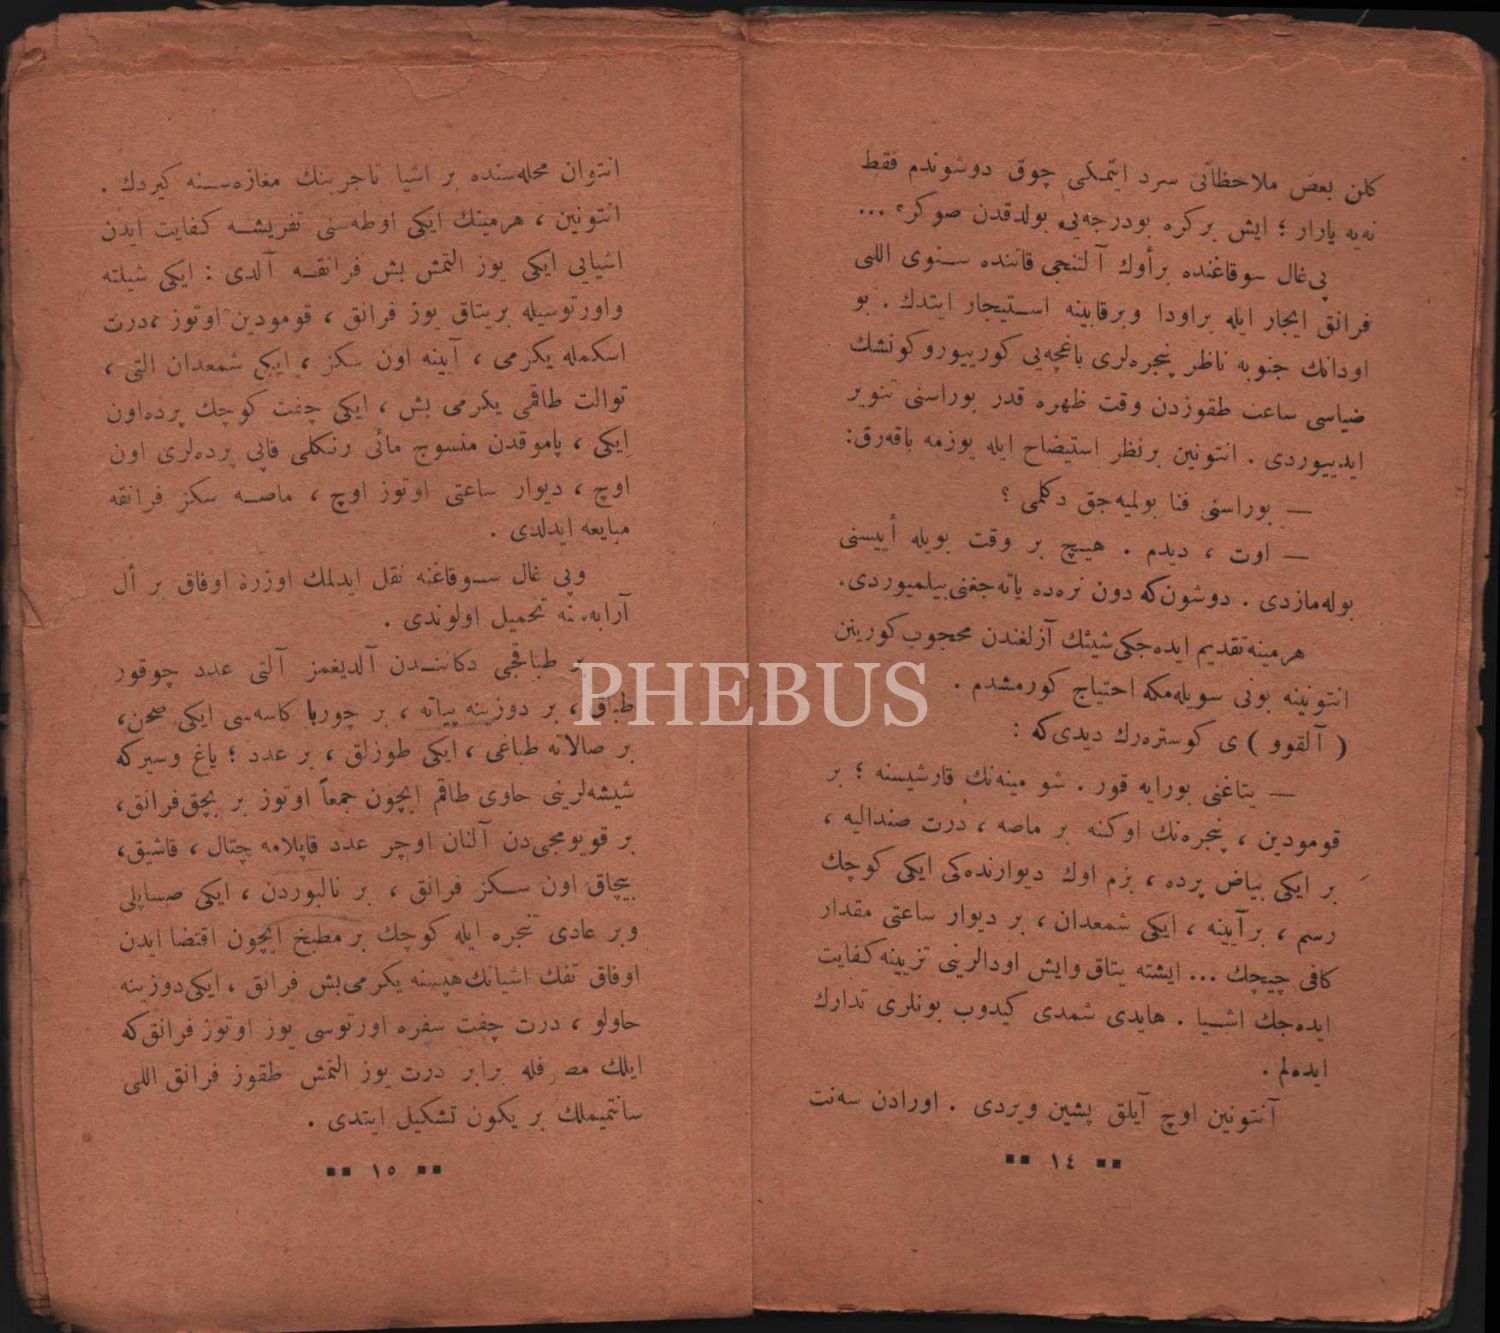 كلن بعض ملاحظاتى سرد ايتمكى چوق دوشوندم فقط
نه‌يه يارار ؛ ايش بركره بودرجه‌يى بولدقدن صوكره ...
پى‌غال سوقاغنده برأوك آلتنجى قاتنده سنوى اللى
فرانق ايجار ايله براودا وبرقابينه استيجار ايتدك . بو
اودانك جنوبه ناظر پنجره‌لرى باغچه‌يى كورييوروكونشك
ضياسى ساعت طقوزدن وقت ظهره قدر بوراسنى تنوير
ايدييوردى . انتونين برنظر استيضاح ايله يوزمه باقه‌رق:
— بوراسنى فنا بولميه‌جق دكلمى ؟
— اوت ، ديدم . هيچ بر وقت بويله أييسنى
بوله‌مازدى . دوشون‌كه دون نره‌ده ياته‌جغنى بيلميوردى.
هرمينه تقديم ايده‌جكى شيئك آزلغندن محجوب كورينن
انتونينه بونى سويله‌مكه احتياج كورمشدم .
( آلقوو ) ى كوستره‌رك ديدى‌كه :
— يتاغنى بورايه قور . شو مينه‌نك قارشيسنه ؛ بر
قومودين ، پنجره‌نك اوكنه بر ماصه ، درت صنداليه ،
بر ايكى بياض پرده ، بزم اوك ديوارنده‌كى ايكى كوچك
رسم ، برآيينه ، ايكى شمعدان ، بر ديوار ساعتى مقدار
كافى چيچك ... ايشته يتاق وايش اودالرينى تزيينه كفايت
ايده‌جك اشيا . هايدى شمدى كيدوب بونلرى تدارك
ايده‌لم .
آنتونين اوچ آيلق پشين ويردى . اورادن سه‌نت
١٤
انتوان محله‌سنده بر اشيا تاجرينك مغازه‌سنه كيردك .
انتونين ، هرمينك ايكى اوطه‌سنى تفريشه كفايت ايدن
اشيايى ايكى يوز التمش بش فرانقه آلدى : ايكى شيلته
واورتوسيله بريتاق يوز فرانق ، قومودين اوتوز ، درت
اسكمله يكرمى ، آيينه اون سكز ، ايكى شمعدان التى ،
توالت طاقمى يكرمى بش ، ايكى چفت كوچك پرده‌اون
ايكى ، پاموقدن منسوج مائى رنكلى قاپى پرده‌لرى اون
اوچ ، ديوار ساعتى اوتوز اوچ ، ماصه سكز فرانقه
مبايعه ايدلدى .
وپى غال سوقاغنه نقل ايدلمك اوزره اوفاق بر أل
آرابه‌سنه تحميل اولوندى .
بر طباقجى دكانندن آلديغمز آلتى عدد چوقور
طباق ، بر دوزينه پياته ، بر چوربا كاسه‌سى ايكى صحن،
بر صالاته طباغى ، ايكى طوزلق ، بر عدد ؛ ياغ وسيركه
شيشه‌لرينى حاوى طاقم ايچون جمعاً اوتوز بر بچق‌فرانق،
بر قويومجى‌دن آلنان اوچر عدد قاپلامه چتال ، قاشيق،
بيچاق اون سكز فرانق ، بر نالبوردن ، ايكى صساپلى
وبر عادى تنجره ايله كوچك بر مطبخ ايچون اقتضا ايدن
اوفاق تفك اشيانك‌هپسنه يكرمى‌بش فرانق ، ايكى‌دوزينه
حاولو ، درت چفت سفره اورتوسى يوز اوتوز فرانق‌كه
ايلك مصرفله برابر درت يوز التمش طقوز فرانق اللى
سانتيملك بر يكون تشكيل ايتدى .
١٥
PHEBUS